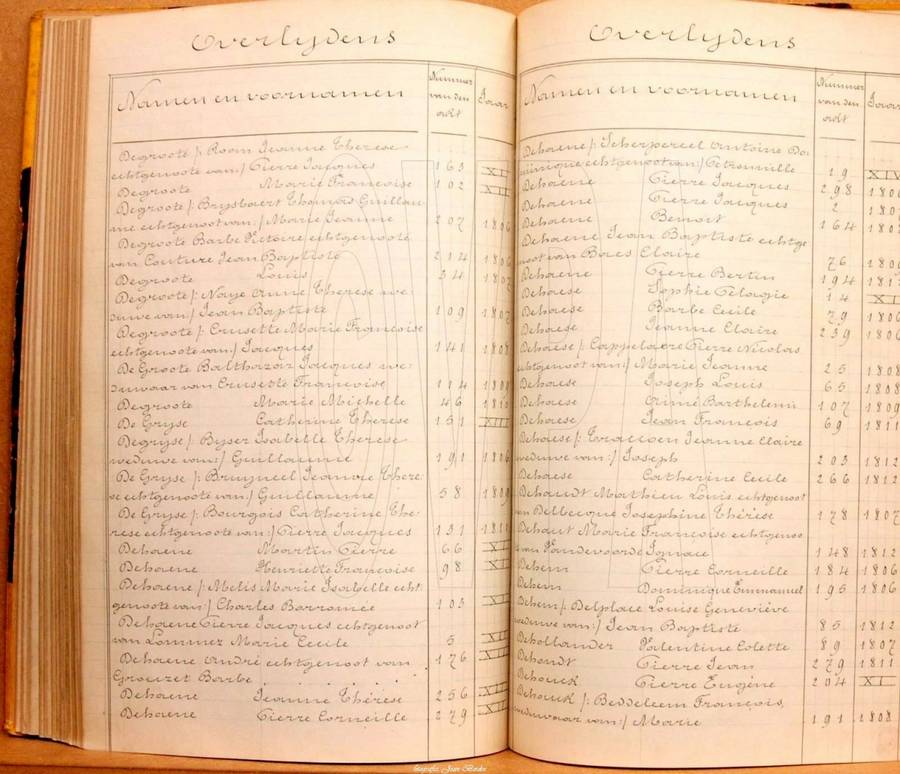 Overlydens
Namen en voornamen
Nummer van den acht
Jaar
Degroote /: Room Jeanne Therese
echtgenoote van:/ Pierre Jacques 163 XI
Degroote Marie Françoise 102 XII
Degroote /: Brysbaert Thomas Guillau-
me echtgenoot van:/ Marie Jeanne 207 1806
Degroote Barbe Victoire echtgenoote
van Couture Jean Baptiste 214 1806
Degroote Louis 34 1807
Degroote /: Naye Anne Therese we-
duwe van:/ Jean Baptiste 109 1807
Degroote /: Crusette Marie Françoise
echtgenoote van:/ Jacques 141 1808
De Groote Balthazar Jacques we-
duwaar van Crusette Françoise 114
Degroote Marie Michelle 46
De Gryse Catherine Therese 151 XIII
Degryse /: Byser Isabelle Therese
weduwe van:/ Guillaume 191 1806
De Gryse /: Bruyneel Jeanne There-
se echtgenoote van:/ Guillaume 58 1809
De Gryse /: Bourgois Catherine The-
rese echtgenoote van:/ Pierre Jacques 131
Dehaene Martin Pierre 66
Dehaene Henriette Françoise 98
Dehaene /: Melis Marie Isabelle echt-
genoote van:/ Charles Barromée 103
Dehaene Pierre Jacques echtgenoot
van Lammez Marie Cecile 5
Dehaene André echtgenoot van 176
Grouzet Barbe
Dehaene Jeanne Thérèse 256
Dehaene Pierre Corneille 279
Overlydens
Namen en voornamen
Nummer van den acht
Jaar
Dehaene /: Scherpereel Antoine Do-
minique echtgenoot van:/ Petronnille 19 XIV
Dehaene Pierre Jacques 298
Dehaene Pierre Jacques 2
Dehaene Benoit 164
Dehaene Jean Baptiste echtge-
noot van Baes Claire 76
Dehaene Pierre Bertin 194
Dehaese Sophie Pelagie 14
Dehaese Barbe Cecile 79
Dehaese Jeanne Claire 239
Dehaese /: Cappelaere Pierre Nicolas
echtgenoot van:/ Marie Jeanne 25 1808
Dehaese Joseph Louis 65 1808
Dehaese Aimé Barthelemi 107 1809
Dehaese Jean François 69 1811
Dehaese /: Traccoen Jeanne Claire
weduwe van:/ Joseph 203 1812
Dehaese Catherine Cecile 266 1812
Dehaudt Mathieu Louis echtgenoot
van Delbecque Josephine Thérèse 178 1807
Dehaut Marie Françoise echtgenoo-
te van Vandevoorde Ignace 148 1812
Dehem Pierre Corneille 184 1806
Dehem Dominique Emmanuel 195 1806
Dehem /: Delplace Louise Geneviève
weduwe van:/ Jean Baptiste 85 1812
Dehollander Valentine Colette 89 1807
Dehondt Pierre Jean 279 1811
Dehouck Pierre Eugène 204 XI
Dehouck /: Beddeleem François,
weduwaar van:/ Marie 191 1808